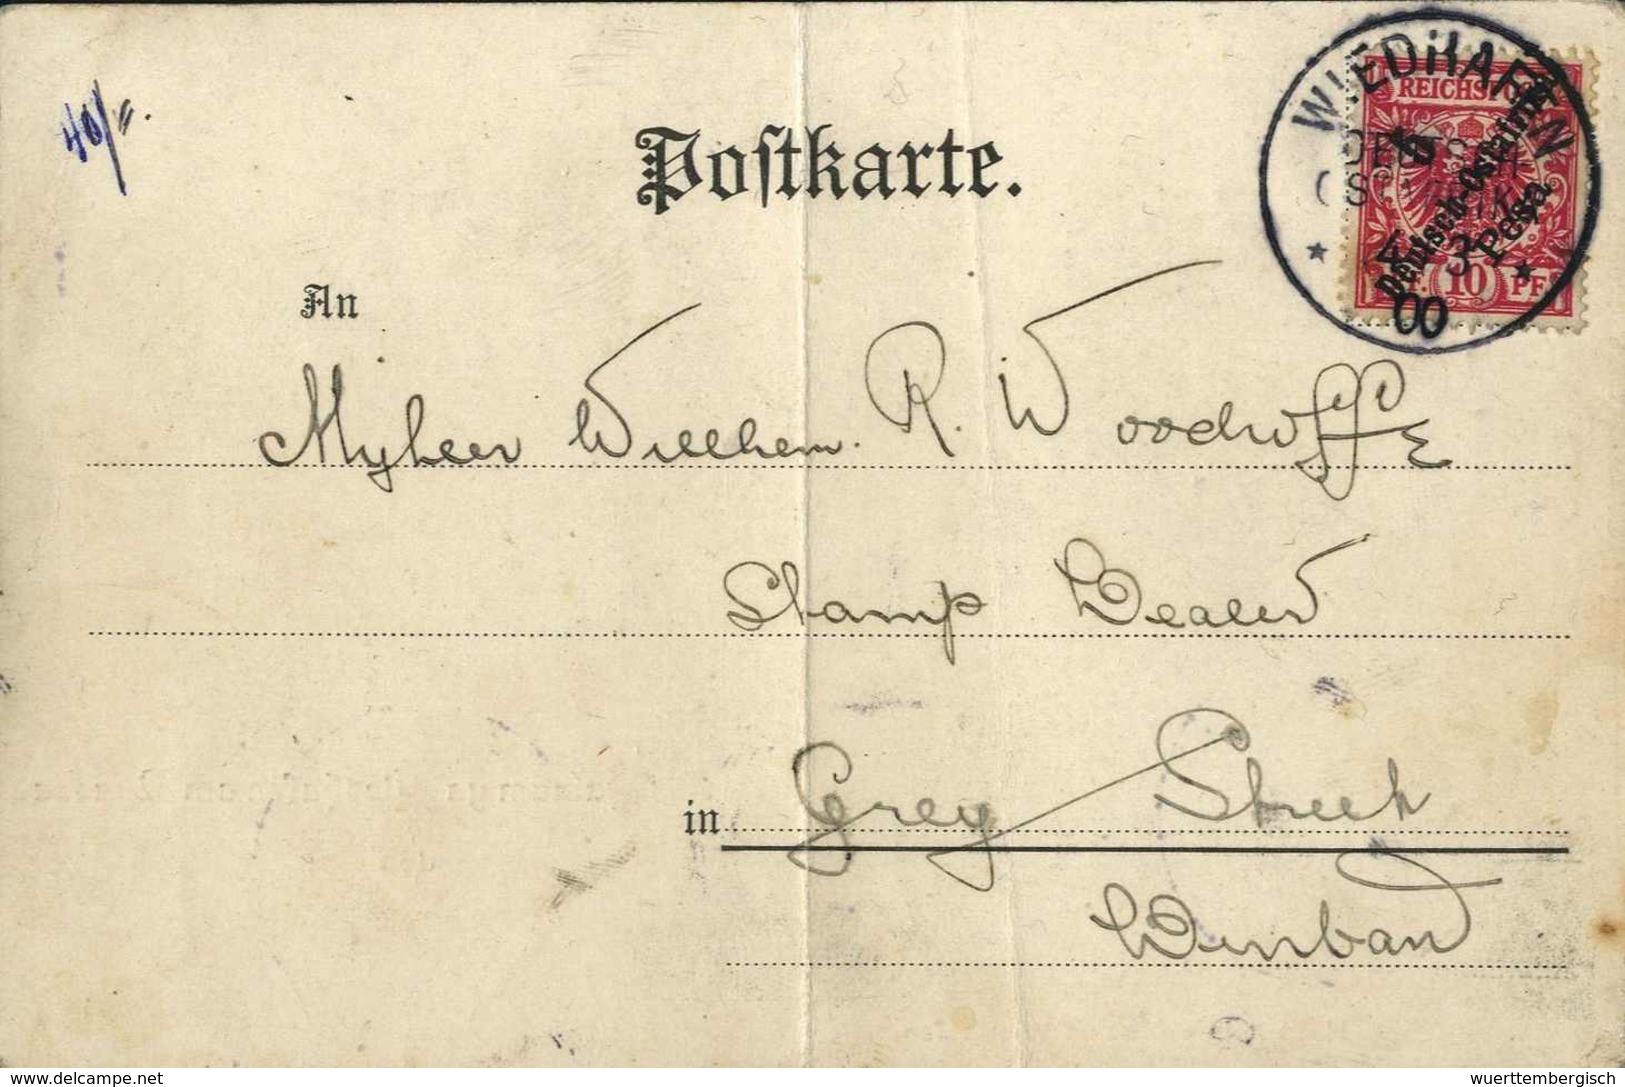 40/=.
Postkarte.
WIEDHAFEN
DEUTSCH
OSTAFRIKA
4 3
00
REICHSPOST
Deutsch-Ostafrika
5 Pesa
10 PF.
An
Mijheer Willhem. R. Woodroffe
Stamp Dealer
in Grey Street
Durban
www.delcampe.net
wuerttembergisch